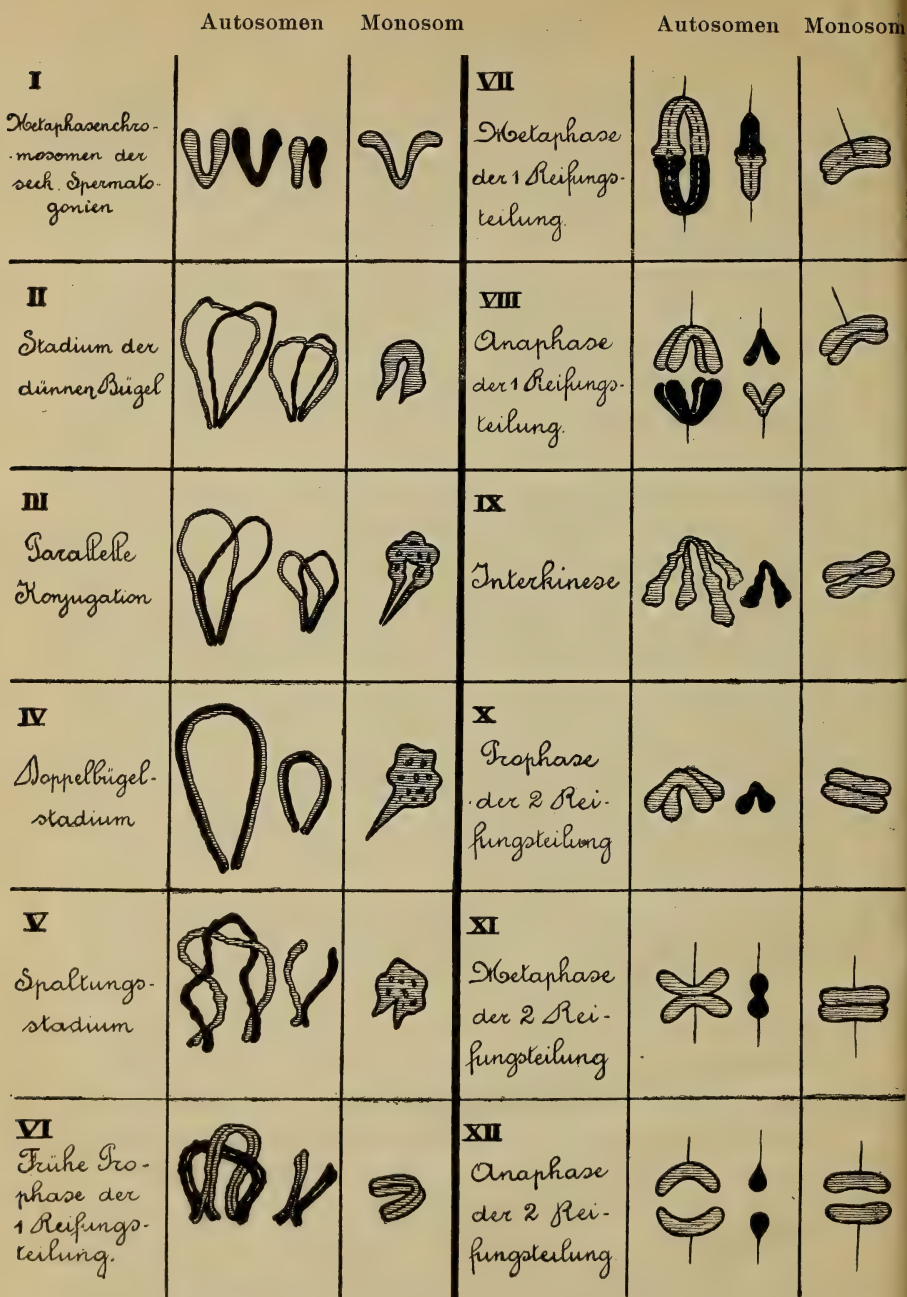 Autosomen Monosom Autosomen Monosom
I
Metaphasenchro-
-mosomen der
sek. Spermato-
gonien
II
Stadium der
dünnen Bügel
III
Parallelle
Konjugation
IV
Doppelbügel-
stadium
V
Spaltungs-
stadium
VI
Frühe Pro-
phase der
1 Reifungs-
teilung.
VII
Metaphase
der 1 Reifungs-
teilung.
VIII
Anaphase
der 1 Reifungs-
teilung.
IX
Interkinese
X
Prophase
der 2 Rei-
fungsteilung
XI
Metaphase
der 2 Rei-
fungsteilung
XII
Anaphase
der 2 Rei-
fungsteilung